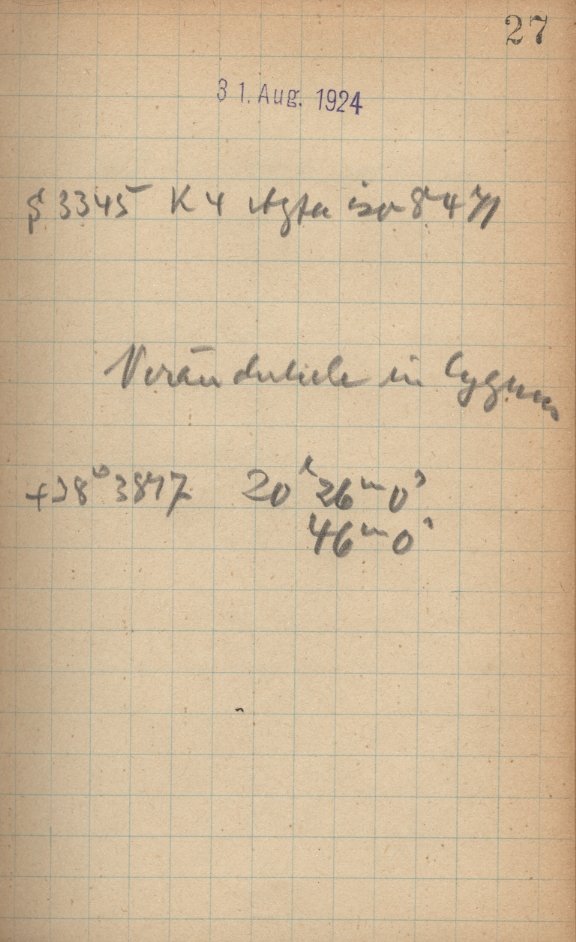 27
31. Aug. 1924
3345 K 4 Agfa iso 8h 47
Veränderliche in Cygnus
+38° 3817 20h 26m 0s
46m 0s